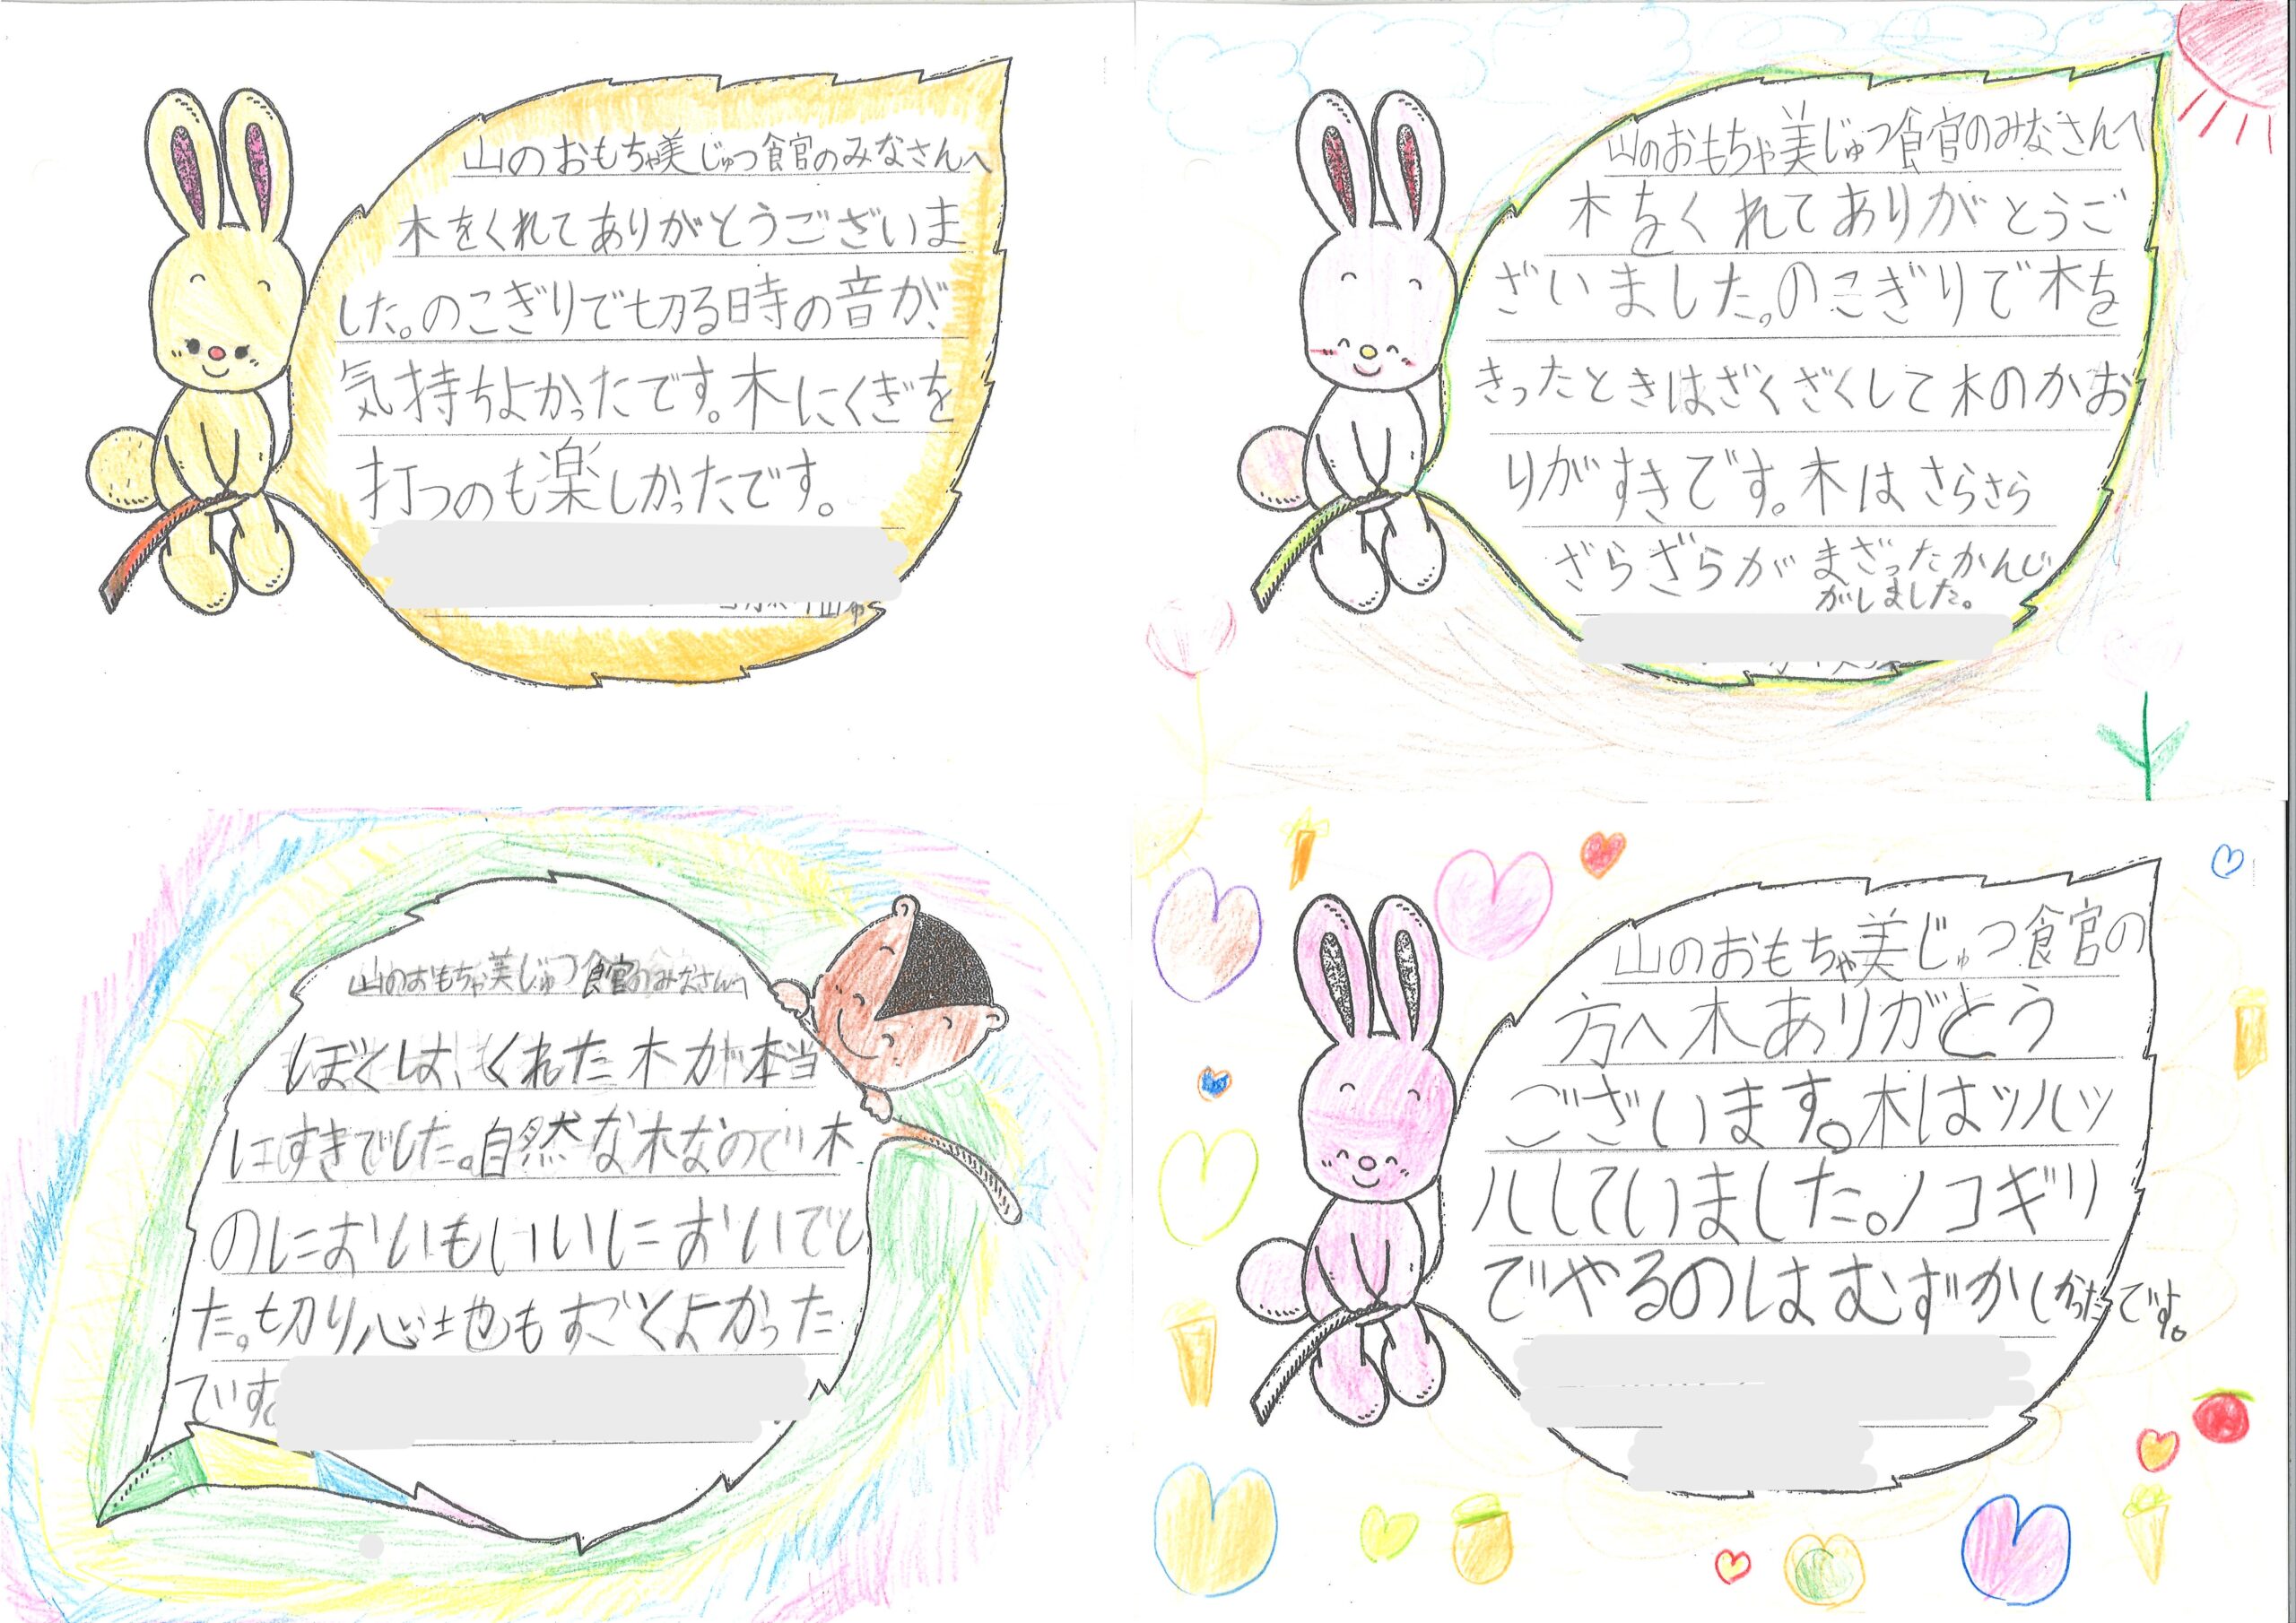 山のおもちゃ美じゅつ館のみなさんへ
木をくれてありがとうございま
した。のこぎりで切る時の音が、
気持ちよかったです。木にくぎを
打つのも楽しかったです。
山のおもちゃ美じゅつ館のみなさんへ
木をくれてありがとうご
ざいました。のこぎりで木を
きったときはざくざくして木のかお
りがすきです。木はさらさら
ざらざらがまざったかんじ
がしました。
山のおもちゃ美じゅつ館のみなさんへ
ぼくは、くれた木が本当
にすきでした。自然な木なので木
のにおいもいいにおいでし
た。切り心地もすごくよかった
です。
山のおもちゃ美じゅつ館の
方へ木ありがとう
ございます。木はツルツ
ルしていました。ノコギリ
でやるのはむずかしかったですよ。